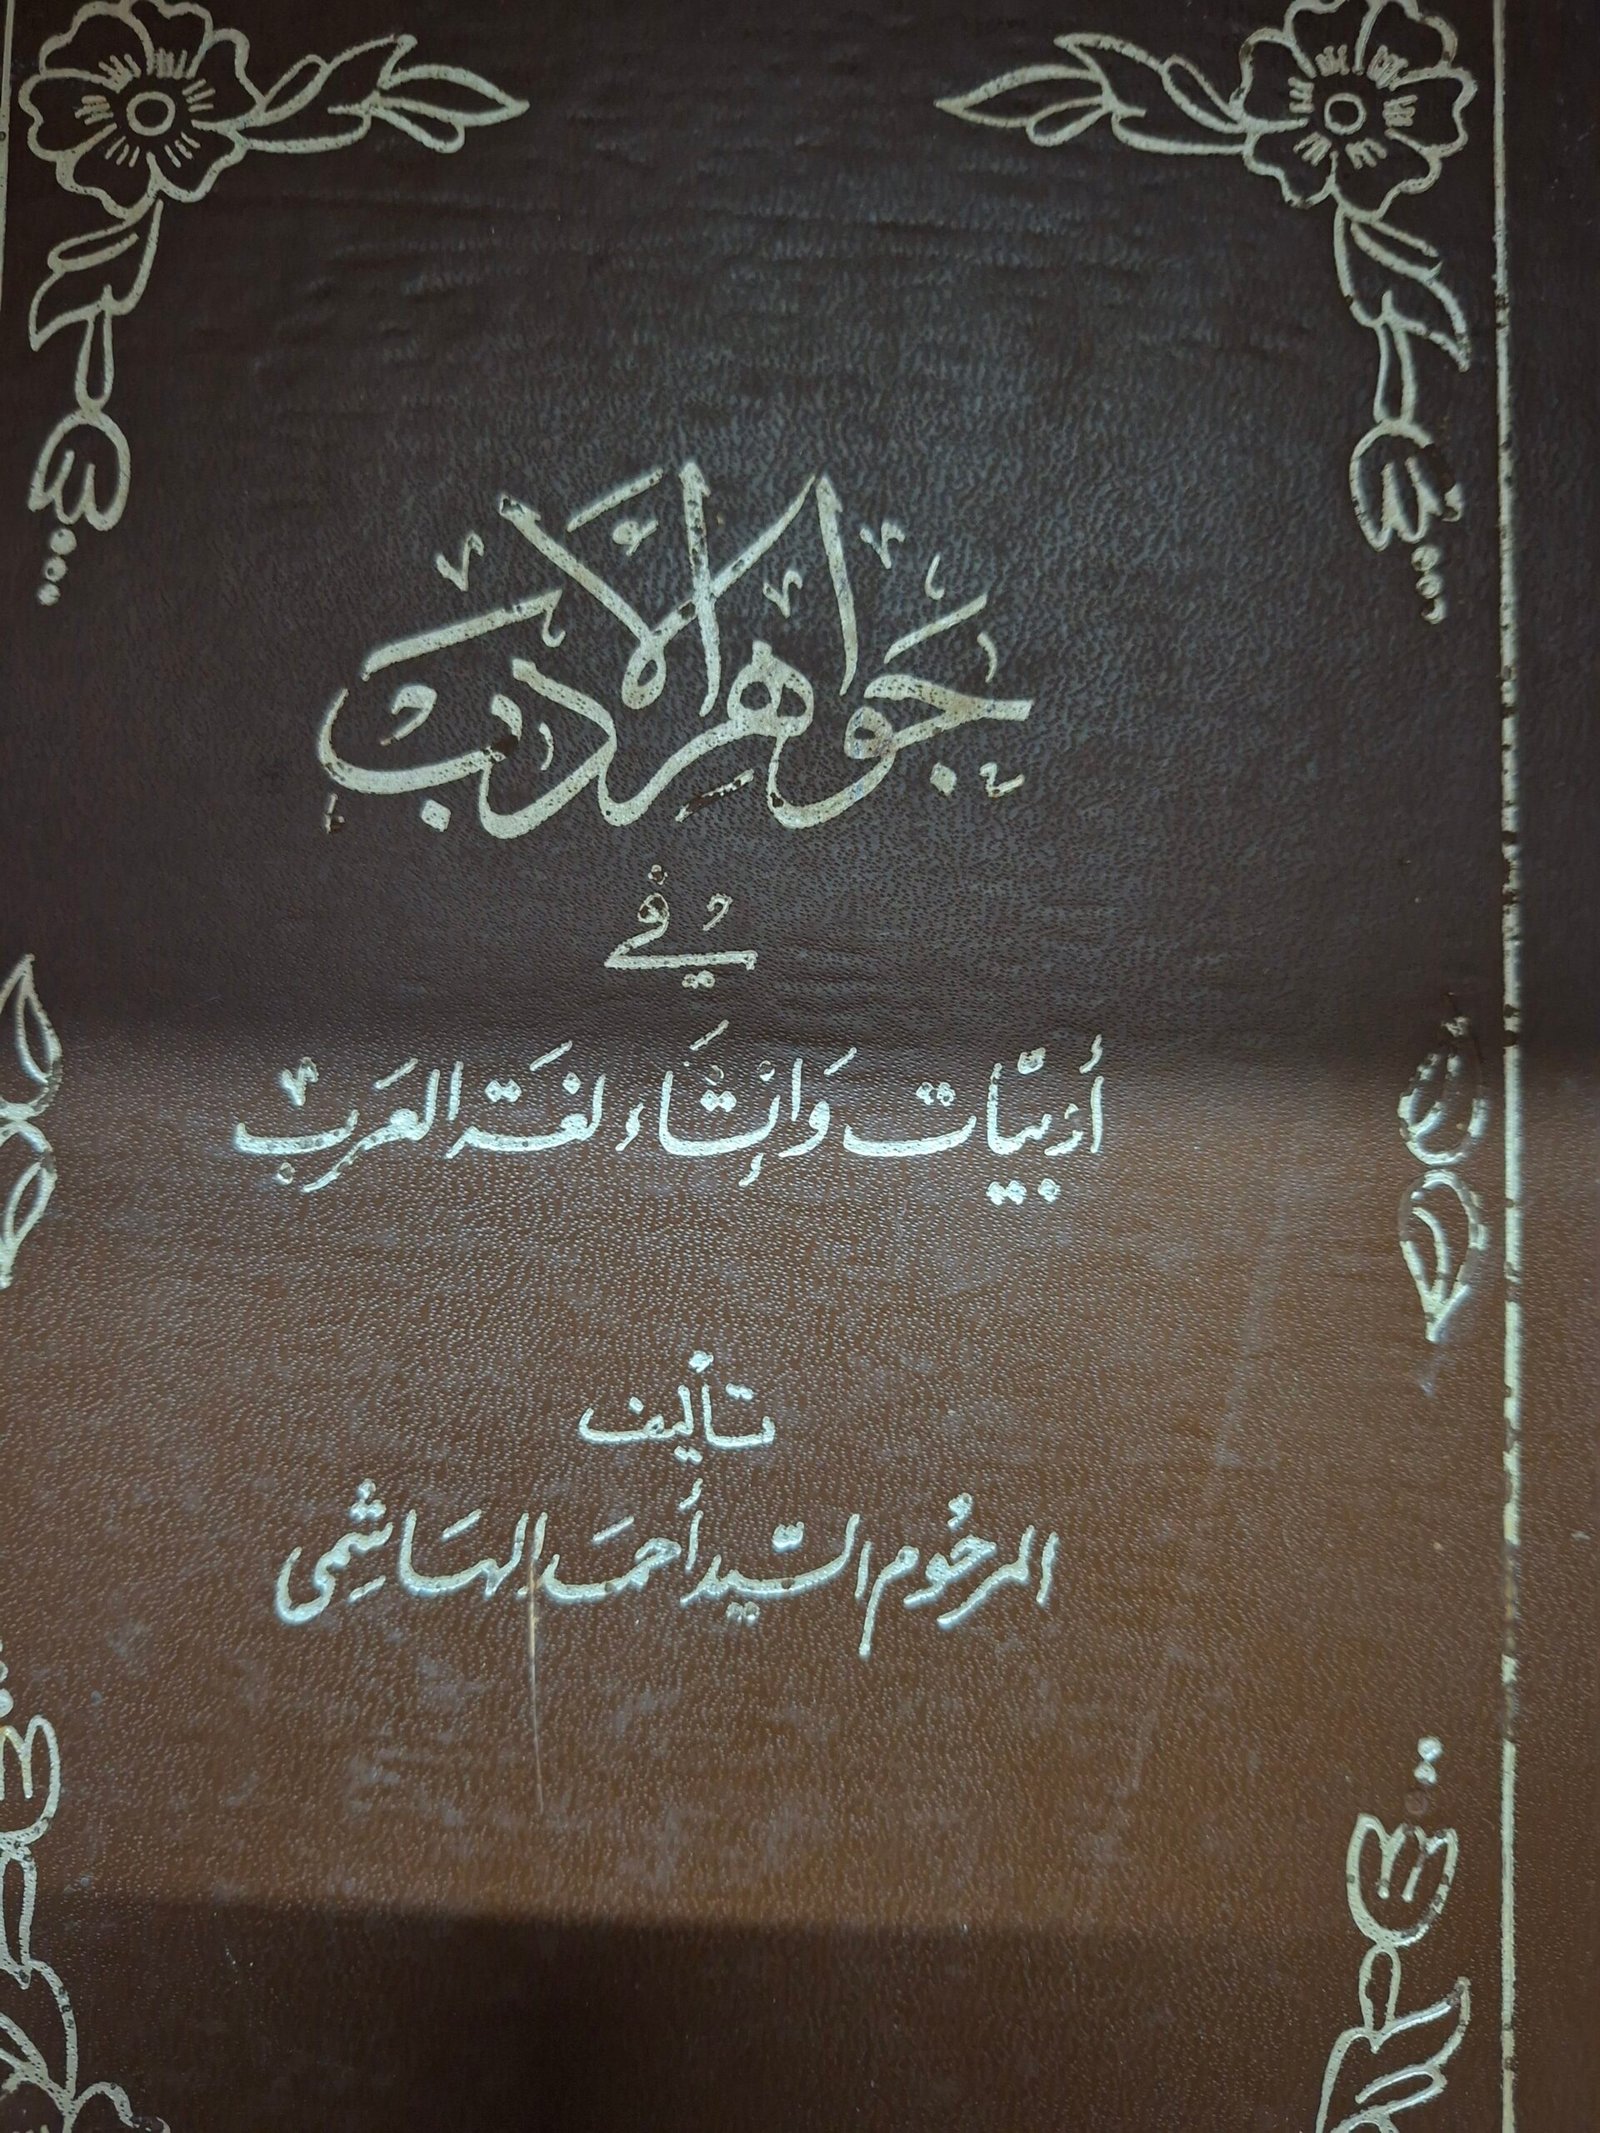 جَوَاهِرُ الأَدَبِ
في
أَدَبيَّات وَإِنْشَاء لغَة العَرَب
تأليف
المرحُوم السَّيد أحمَد الهَاشِمي